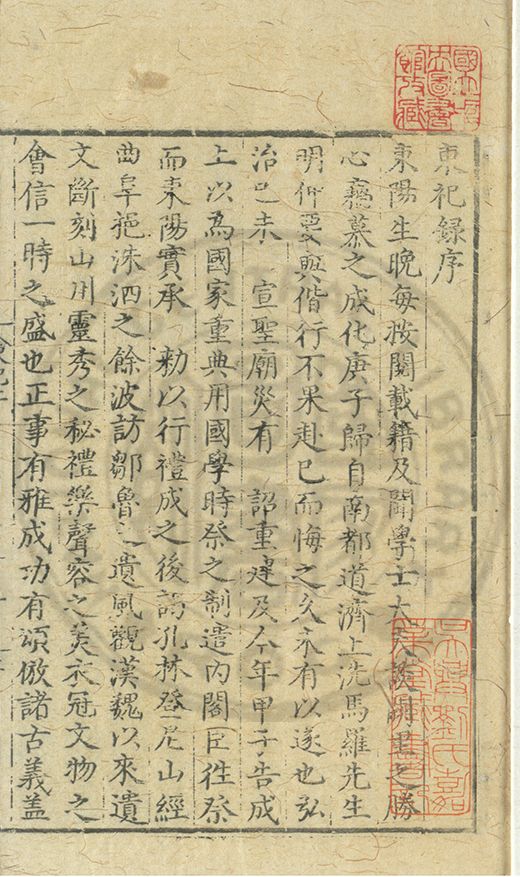 東祀錄序
東陽生晚每按閱載籍及聞學士大夫談闕里之勝
心竊慕之成化庚子歸自南都道濟上洗馬羅先生
明仲要與偕行不果赴已而悔之久未有以遂也弘
治己未　宣聖廟災有　詔重建及今年甲子告成
上以為國家重典用國學時祭之制遣內閣臣徃祭
而東陽實承　勑以行禮成之後謁孔林登尼山經
曲阜挹洙泗之餘波訪鄒魯之遺風觀漢魏以來遺
文斷刻山川靈秀之秘禮樂聲容之美衣冠文物之
會信一時之盛也正事有雅成功有頌倣諸古義蓋
國立中央圖書館收藏